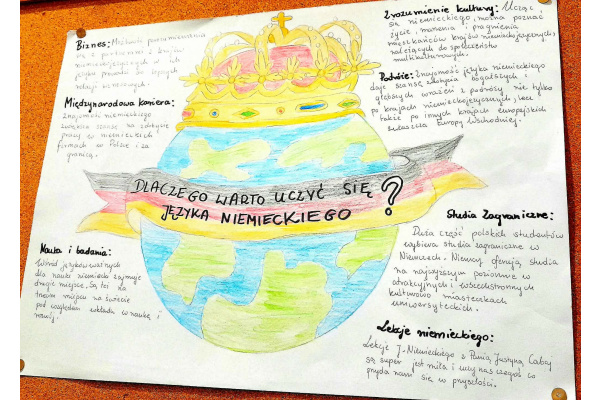 Biznes: Możliwość porozumiewania
się z partnerami z krajów
niemieckojęzycznych w ich
języku prowadzi do lepszych
relacji
Międzynarodowa kariera:
Znajomość niemieckiego
zwiększa szanse na zdobycie
pracy w niemieckich
firmach w Polsce i za
granicą.
Nauka i badania:
Wśród języków ważnych
dla nauki niemiecki zajmuje
drugie miejsce. Są też na
trzecim miejscu na świecie
pod względem wkładu w naukę i
rozwój.
DLACZEGO WARTO UCZYĆ SIĘ
JĘZYKA NIEMIECKIEGO ?
Zrozumienie kultury: Ucząc
się niemieckiego, można poznać
życie, marzenia i pragnienia
mieszkańców krajów niemieckojęzycznych
należących do społeczeństw
multikulturowych.
Podróże: Znajomość języka niemieckiego
daje szansę zdobycia bogatszych i
głębszych wrażeń z podróży nie tylko
po krajach niemieckojęzycznych, lecz
także po innych krajach europejskich
zwłaszcza Europy Wschodniej.
Studia Zagraniczne:
Duża część polskich studentów
wybiera studia zagraniczne w
Niemczech. Niemcy oferują studia
na najwyższym poziomie w
atrakcyjnych i wszechstronnych
kulturowo miasteczkach
uniwersyteckich.
Lekcje niemieckiego:
Lekcje J. Niemieckiego z Panią Justyną Cabaj
są super jest miła i uczy nas czegoś co
przyda nam się w przyszłości.